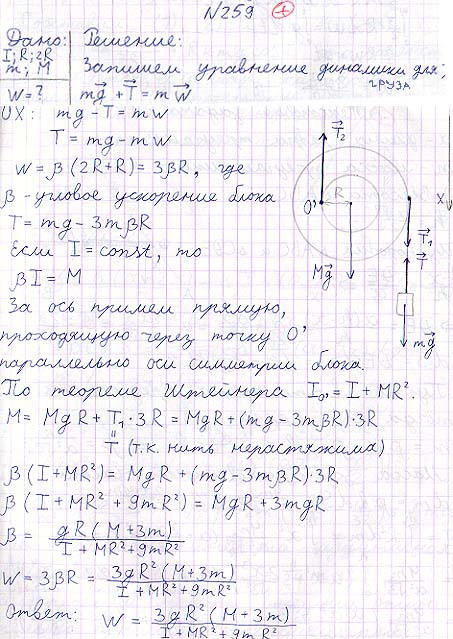 N259 +
Дано: Решение:
I; R; 2R
m; M
Запишем уравнение динамики для
груза
W = ?
mg⃗ + T⃗ = mw⃗
OX: mg - T = mw
T = mg - mw
W = β(2R+R) = 3βR, где
β - угловое ускорение блока
T = mg - 3mβR
Если I = const, то
βI = M
За ось примем прямую,
проходящую через точку O'
параллельно оси симметрии блока.
По теореме Штейнера I₀' = I + MR².
M = MgR + T₁·3R = MgR + (mg - 3mβR)·3R
T (т.к. нить нерастяжима)
β(I+MR²) = MgR + (mg - 3mβR)·3R
β(I+MR² + 9mR²) = MgR + 3mgR
β = gR(M+3m) / I+MR²+9mR²
W = 3βR = 3gR²(M+3m) / I+MR²+9mR²
Ответ: W = 3gR²(M+3m) / I+MR²+9mR²
T⃗₂
R
X
O'
T⃗₁
T⃗
Mg⃗
mg⃗